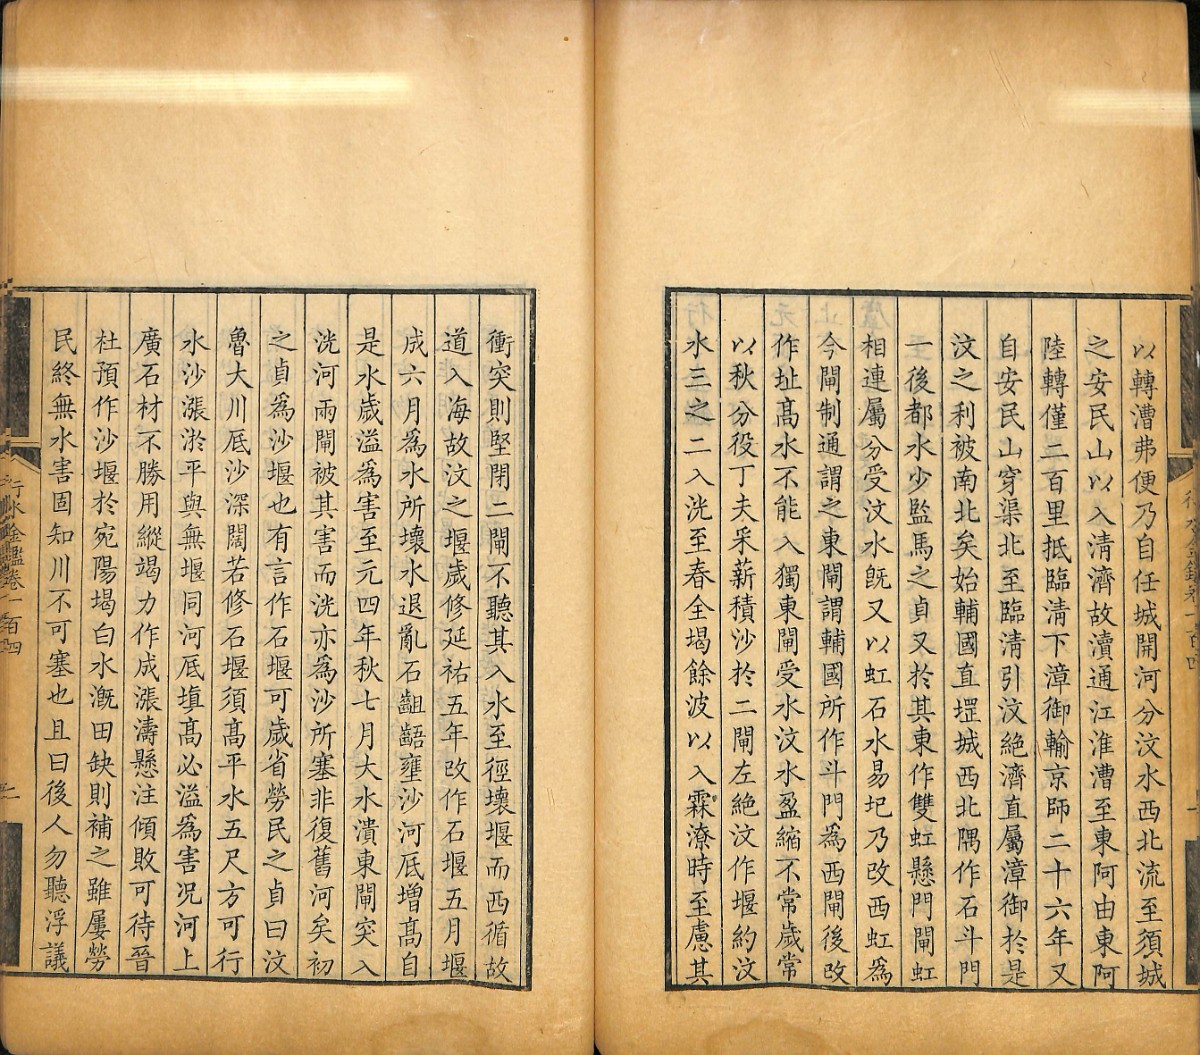 以轉漕弗便乃自任城開河分汶水西北流至須城
之安民山以入淸濟故瀆通江淮漕至東阿由東阿
陸轉僅二百里抵臨淸下漳御輸京師二十六年又
自安民山穿渠北至臨淸引汶絶濟直屬漳御於是
汶之利被南北矣始輔國直堽城西北隅作石斗門
一後都水少監馬之貞又於其東作雙虹懸門閘虹
相連屬分受汶水旣又以虹石水易圮乃改西虹爲
今閘制通謂之東閘謂輔國所作斗門爲西閘後改
作址髙水不能入獨東閘受水汶水盈縮不常歲常
以秋分役丁夫采薪積沙於二閘左絶汶作堰約汶
水三之二入洸至春全堨餘波以入霖潦時至慮其
衝突則堅閉二閘不聽其入水至徑壞堰而西循故
道入海故汶之堰歲修延祐五年改作石堰五月堰
成六月爲水所壞水退亂石齟齬壅沙河底增髙自
是水歲溢爲害至元四年秋七月大水潰東閘突入
洸河兩閘被其害而洸亦爲沙所塞非復舊河矣初
之貞爲沙堰也有言作石堰可歲省勞民之貞曰汶
魯大川底沙深闊若修石堰須髙平水五尺方可行
水沙漲淤平與無堰同河底塡髙必溢爲害况河上
廣石材不勝用縱竭力作成漲濤懸注傾敗可待晉
杜預作沙堰於宛陽堨白水溉田缺則補之雖屢勞
民終無水害固知川不可塞也且曰後人勿聽浮議
行水金鑑卷一百四